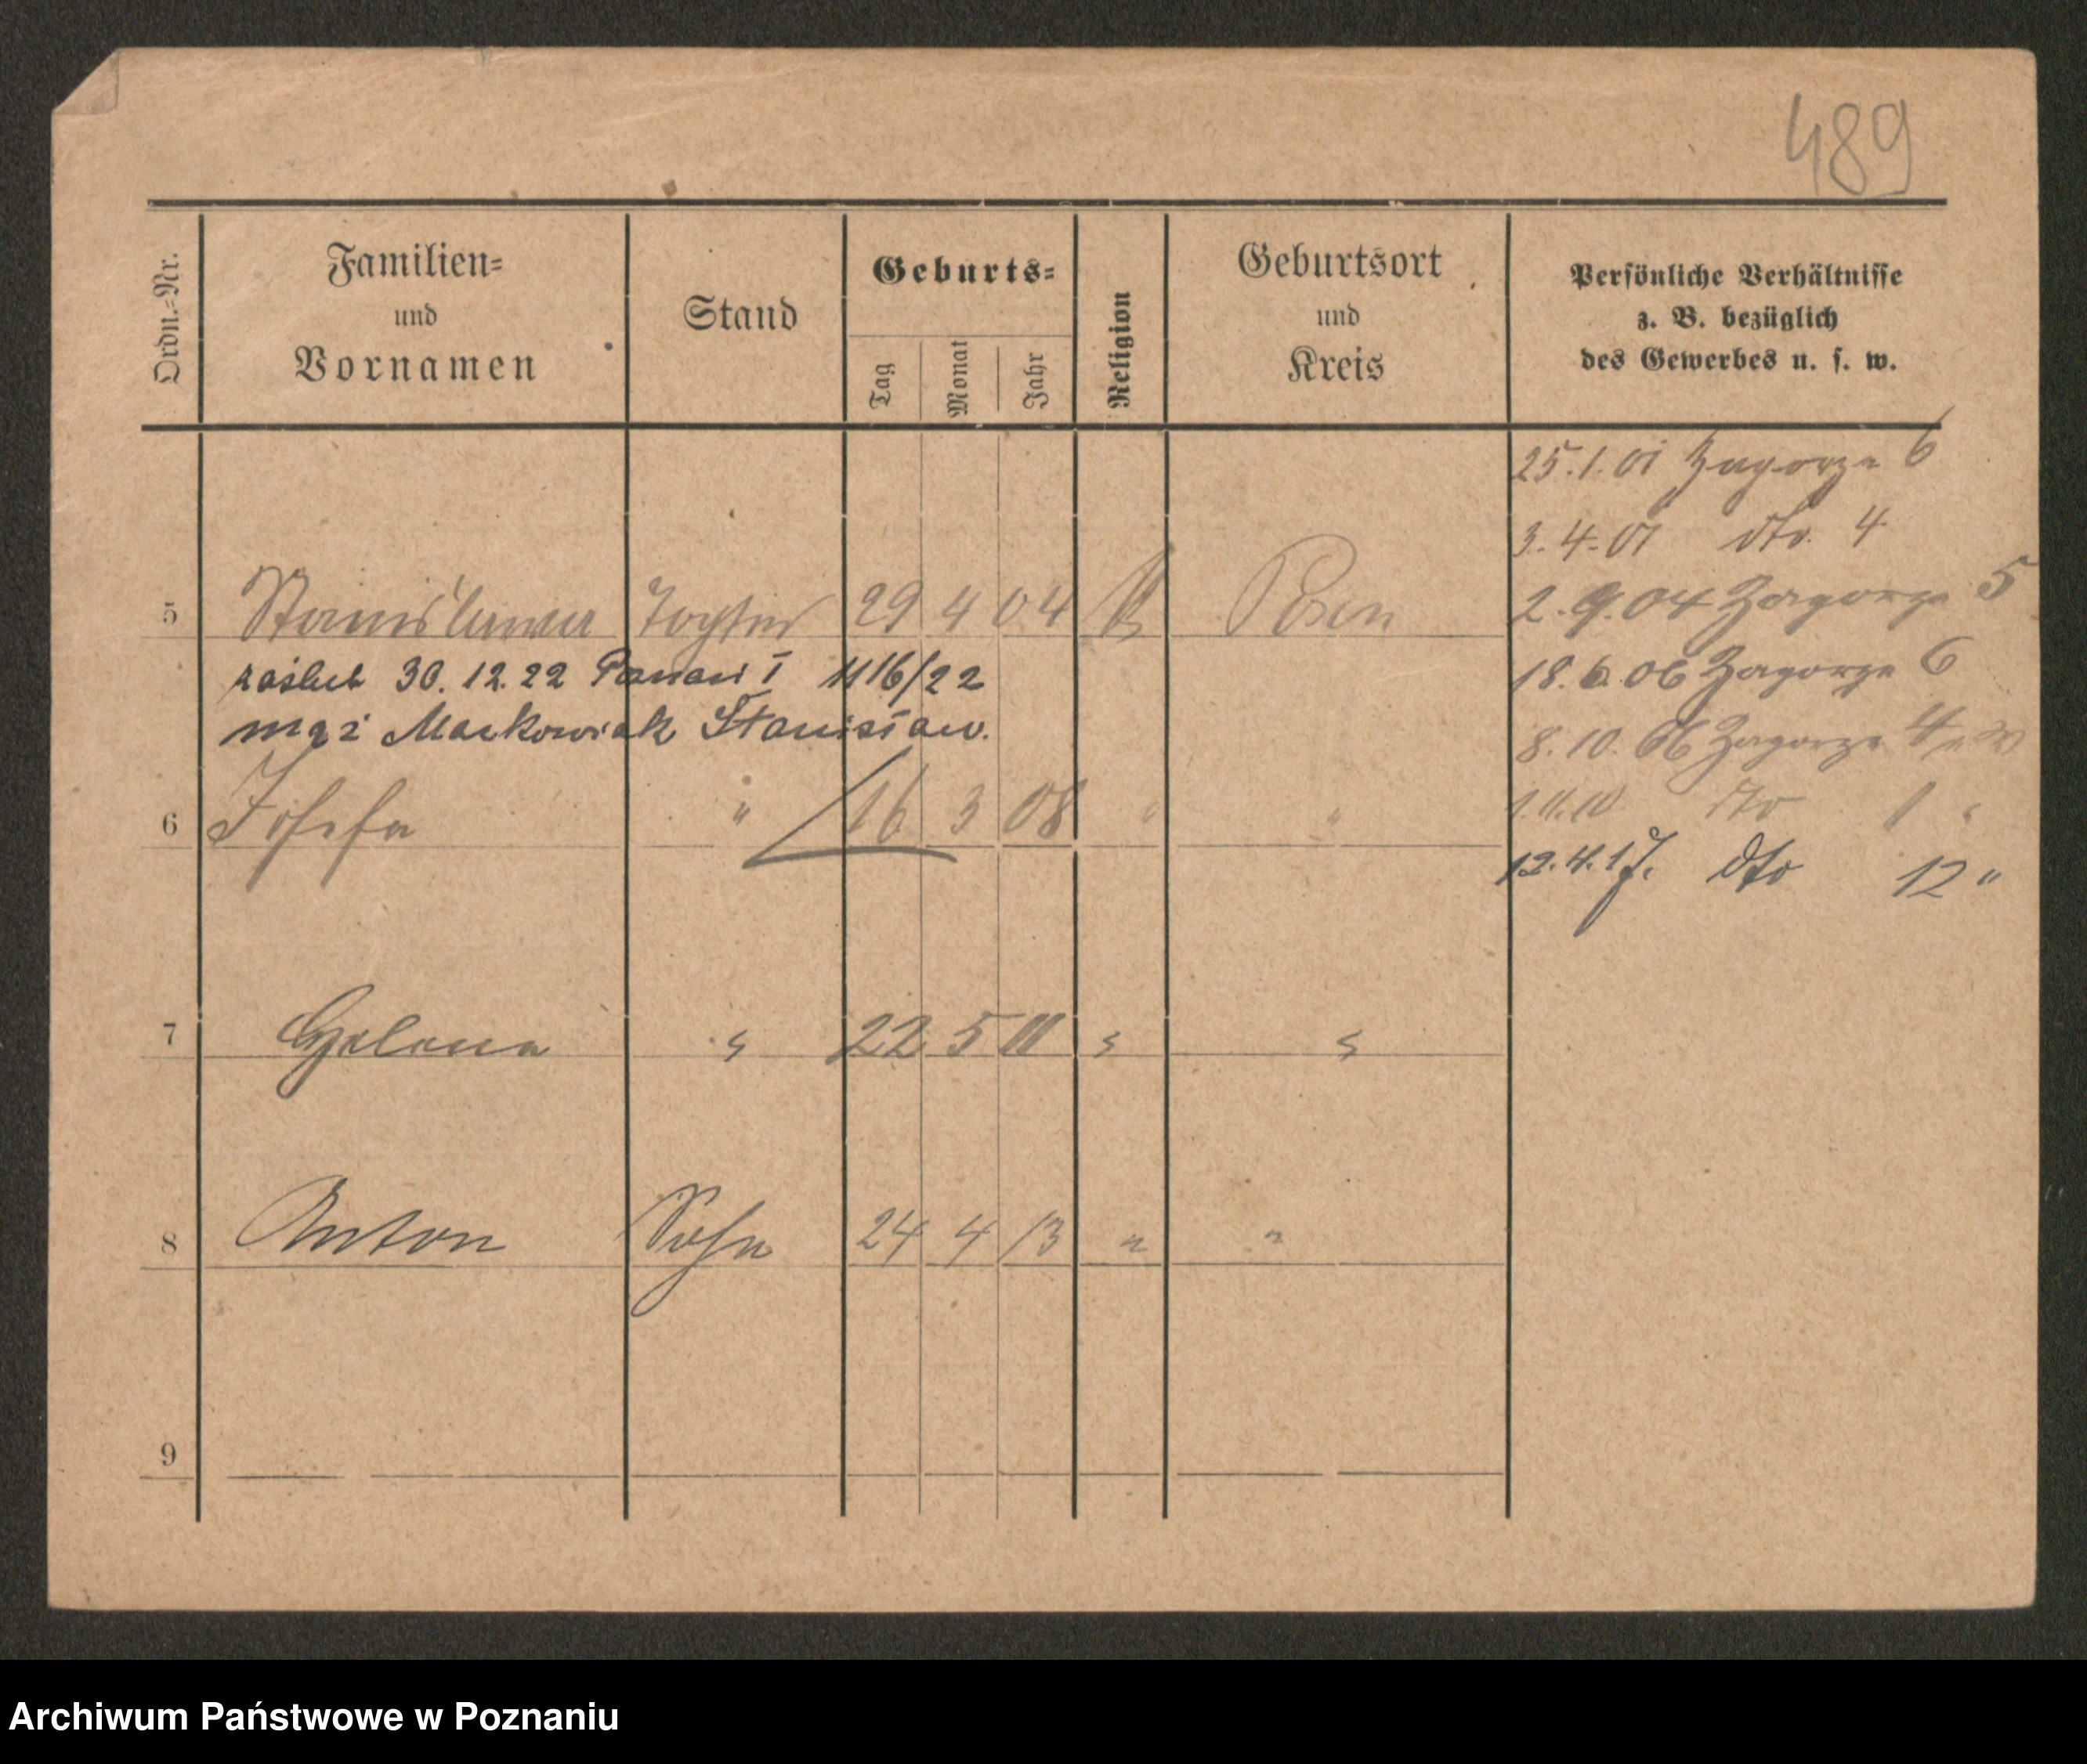 489
Ordn.-Nr.
Familien-
und
Vornamen
Stand
Geburts-
Tag
Monat
Jahr
Religion
Geburtsort
und
Kreis
Persönliche Verhältnisse
z. B. bezüglich
des Gewerbes u. s. w.
25.1.01 Zagorze 6
3.4.01 dto. 4
5 Stanislawa Tochter 29 4 04 K Posen
2.9.04 Zagorze 5
zaślub 30.12.22 Poznań I 1116/22
18.6.06 Zagorze 6
mąż Markowiak Stanisław.
8.10.06 Zagorze 4
6 Josefa " 16 3 08 " "
1.11.10 dto 1 "
12.4.17. dto 12 "
7 Helena " 22 5 11 " "
8 Anton Sohn 24 4 13 " "
9
Archiwum Państwowe w Poznaniu